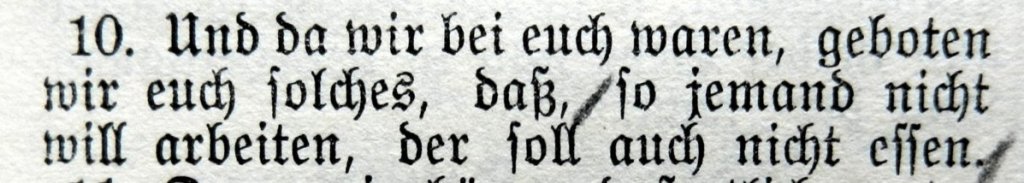 10. Und da wir bei euch waren, geboten
wir euch solches, daß, so jemand nicht
will arbeiten, der soll auch nicht essen.